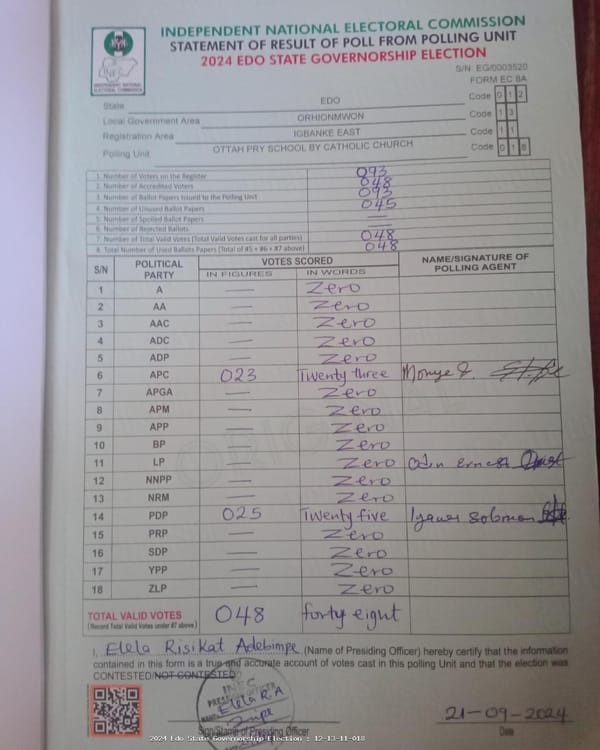 INDEPENDENT NATIONAL ELECTORAL COMMISSION
STATEMENT OF RESULT OF POLL FROM POLLING UNIT
2024 EDO STATE GOVERNORSHIP ELECTION
S/N: EG/0003520
FORM EC 8A
INEC
INDEPENDENT NATIONAL ELECTORAL COMMISSION
State EDO Code 0 1 2
Local Government Area ORHIONMWON Code 1 3
Registration Area IGBANKE EAST Code 1 1
Polling Unit OTTAH PRY SCHOOL BY CATHOLIC CHURCH Code 0 1 8
1. Number of Voters on the Register 093
2. Number of Accredited Voters 048
3. Number of Ballot Papers Issued to the Polling Unit 093
4. Number of Unused Ballot Papers 045
5. Number of Spoiled Ballot Papers —
6. Number of Rejected Ballots —
7. Number of Total Valid Votes (Total Valid Votes cast for all parties) 048
8. Total Number of Used Ballots Papers (Total of #5 + #6 + #7 above) 048
S/N POLITICAL PARTY VOTES SCORED NAME/SIGNATURE OF POLLING AGENT
IN FIGURES IN WORDS
1 A — Zero
2 AA — Zero
3 AAC — Zero
4 ADC — Zero
5 ADP — Zero
6 APC 023 Twenty three Monye
7 APGA — Zero
8 APM — Zero
9 APP — Zero
10 BP — Zero
11 LP — Zero Odin ernest
12 NNPP — Zero
13 NRM — Zero
14 PDP 025 Twenty five Solomon
15 PRP — Zero
16 SDP — Zero
17 YPP — Zero
18 ZLP — Zero
TOTAL VALID VOTES 048 forty eight
(Record Total Valid Votes under #7 above)
I, Elela Risikat Adebimpe (Name of Presiding Officer) hereby certify that the information
contained in this form is a true and accurate account of votes cast in this polling Unit and that the election was
CONTESTED/NOT CONTESTED
INEC
PRESIDING OFFICER
Elela R.A
21-09-2024
Sign/Stamp of Presiding Officer
2024 Edo State Governorship Election : 12-13-11-018